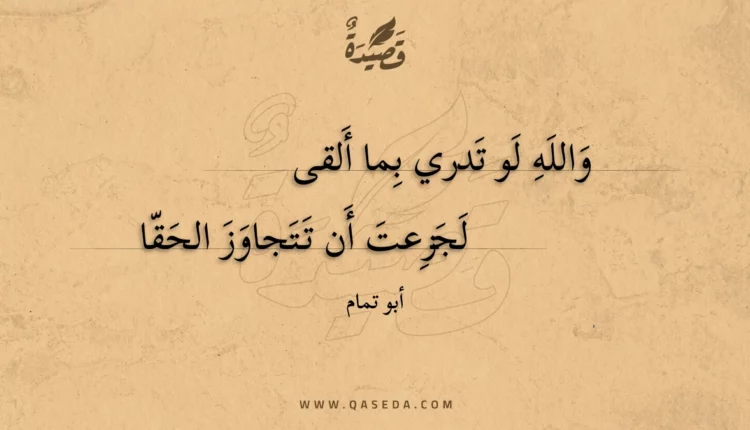 قَصِيدَةٌ
وَاللَهِ لَو تَدري بِما أَلقى
لَجَزِعتَ أَن تَتَجاوَزَ الحَقّا
أبو تمام
WWW.QASEDA.COM